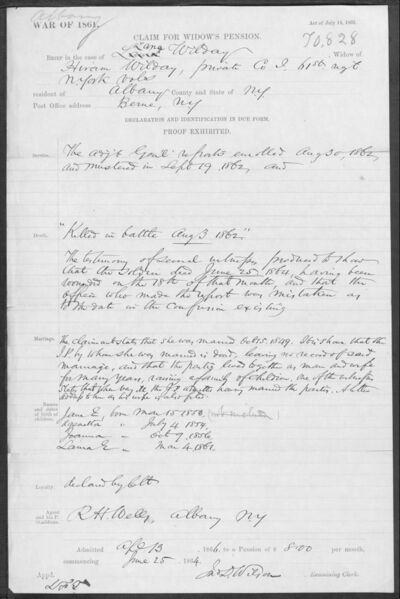 Albany
WAR OF 1861.
Act of July 14, 1862.
CLAIM FOR WIDOW'S PENSION.
70,828
BRIEF in the case of Lana Wilday, Widow of
Hiram Wilday, private Co I. 61st regt
N York vols
resident of Albany County and State of NY
Post Office address Berne, NY
DECLARATION AND IDENTIFICATION IN DUE FORM.
PROOF EXHIBITED.
Service. The adjt Genl reports enrolled Aug 30, 1862,
and mustered in Sept 19 1862, and
Death. "Killed in battle Aug 3 1862"
The testimony of several witnesses produced to show
that the soldier died June 25th 1864, having been
wounded on the 18th of that month, and that the
officer who made the report was mistaken as
to the date in the confusion existing
Marriage. The claimant states that she was married Oct 15. 1849. It is shown that the
J.P. by whom she was married is dead, leaving no record of said
marriage, and that the parties lived together as man and wife
for many years, raising a family of children, one of the witnesses
states that she was at the
Names and dates of birth of children.
Jane E, born Mar 15 1853
" July 4 1854.
Joanna " Oct 9 1856
Laura E " Mar 4 1861.
Loyalty. declared by Clt
Agent and his P. O. address. R. H. Wells, Albany NY
Admitted Apl 13, 1866, to a Pension of $ 8.00 per month,
commencing June 25, 1864.
Examining Clerk.
Appd.